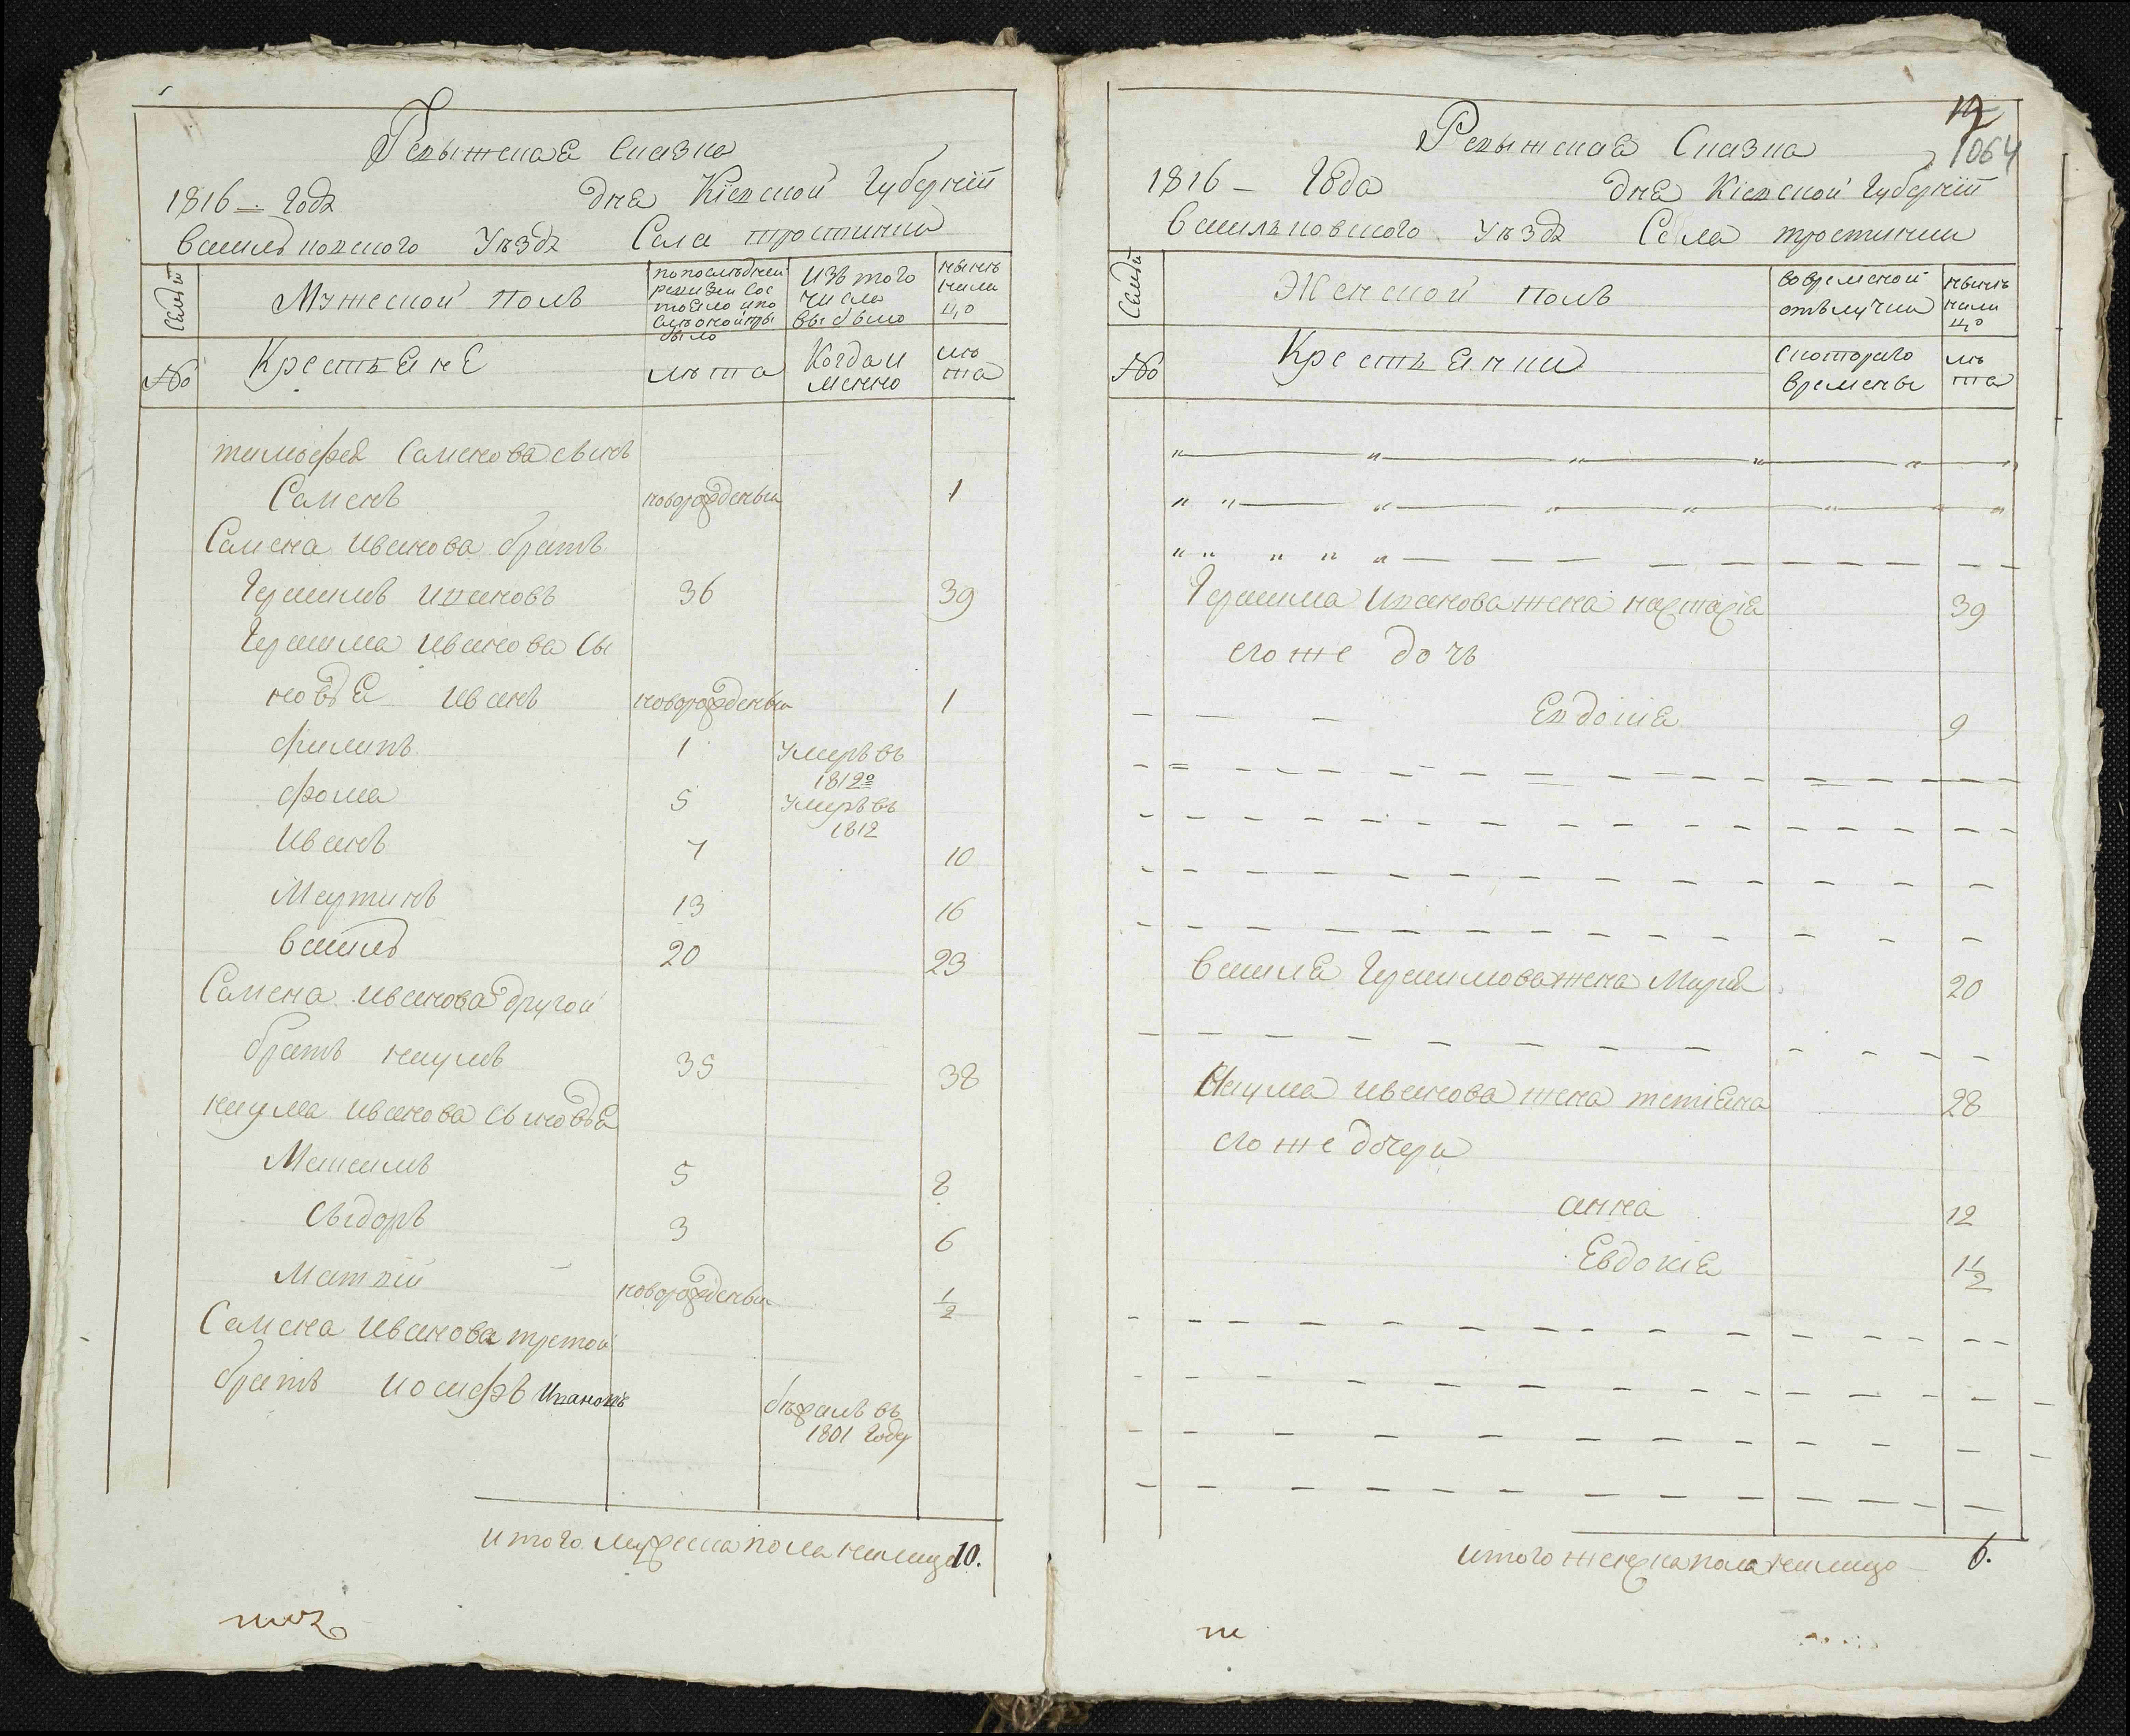 Ревыжская Сказка
1816 – годѣ дня Кіевской губерніи
василькопского уездѣ Села тростинки
Семьи
Мужеской полъ
попоследней ревизіи состояло ипослѣ оной прыбыло
изъ того числа выбыло
нынѣ налицо
№
Крестьяне
лѣта
Когда имянно
лѣта
тимофея Саменова сынъ
Саменъ новорожденны 1
Самена иванова братъ
Герасимъ ивановъ 36 39
Герасима иванова сы
новья иванъ новорожденны 1
филипъ 1 умеръ въ 1812º
фома 5 умеръ въ 1812
иванъ 7 10
Мартинъ 13 16
василь 20 23
Самена иванова другой
братъ наумъ 35 38
наума иванова сыновья
Максимъ 5 8
Сыдоръ 3 6
Матвій новорожденны ½
Самена иванова третой
братъ иосифъ ивановъ бѣжалъ въ 1801 году
итого мужеска пола налицо 10.
1064
Ревыжская Сказка
1816 – года дня Кіевской губерніи
васильковского уездѣ Села тростинки
Семьи
Женской полъ
во временной отълучки
нынѣ налицо
№
Крестьянки
скоторого времены
лѣта
Герасима иванова жена настасія 39
его же дочъ
Евдокія 9
василя Герасимова жена Марія 20
Наума иванова жена тетіяна 28
его же дочеры
анна 12
Евдокія 1½
итого женска пола налицо – 6.